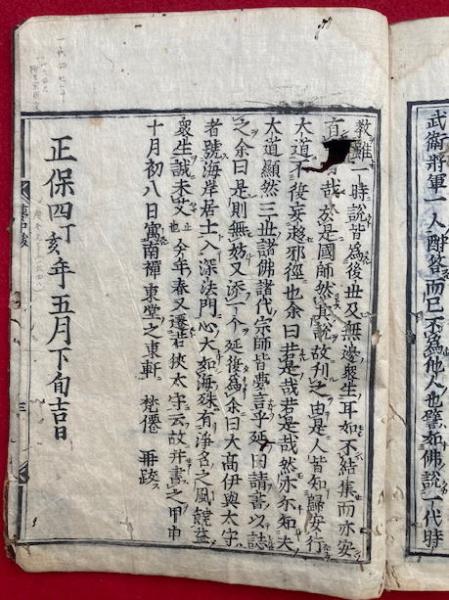 武衛將軍一人酬答而已不爲他人也譬如佛說一代時
教雖一時說皆爲後世及無邊衆生耳如不結集而亦安
哉於是國師然其說故刊之由是人皆知歸安行
大道不後妄趍邪徑也余曰若是哉若是哉然亦尓知夫
大道顯然三世諸佛諸代宗師皆夢言乎延曰請書以誌
之余曰是則無妨又添一今延後爲余曰大高伊與太守
者號海岸居士入深法門心大如海殊有淨名之風饒益
衆生誠未艾也今年春又遷若狹太守云故并書之甲申
十月初八日寓南禪東堂之東軒 梵僊 再跋
正保四丁亥年五月下旬吉日
三